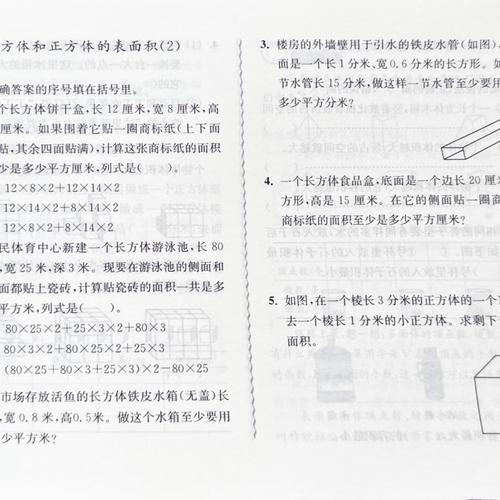 方体和正方体的表面积(2)
确答案的序号填在括号里。
个长方体饼干盒,长 12 厘米,宽 8 厘米,高
厘米。如果围着它贴一圈商标纸(上下面
贴,其余四面贴满),计算这张商标纸的面积
是多少平方厘米,列式是( )。
12×8×2+12×14×2
12×14×2+8×14×2
12×14×2+8×14×2
民体育中心新建一个长方体游泳池,长 80
,宽 25 米,深 3 米。现要在游泳池的侧面和
面都贴上瓷砖,计算贴瓷砖的面积一共是多
平方米,列式是( )。
80×25×2+25×3×2+80×3
80×3×2+80×25×2+25×3
(80×25+80×3+25×3)×2-80×25
市场存放活鱼的长方体铁皮水箱(无盖)长
,宽 0.8 米,高0.5米。做这个水箱至少要用
少平方米?
3. 楼房的外墙壁用于引水的铁皮水管(如图),
面是一个长 1 分米、宽 0.6 分米的长方形。如
节水管长 15 分米,做这样一节水管至少要用
多少平方分米?
4. 一个长方体食品盒,底面是一个边长 20 厘米
方形,高是 15 厘米。在它的侧面贴一圈商
商标纸的面积至少是多少平方厘米?
5. 如图,在一个棱长 3 分米的正方体的一个
去一个棱长 1 分米的小正方体。求剩下
面积。